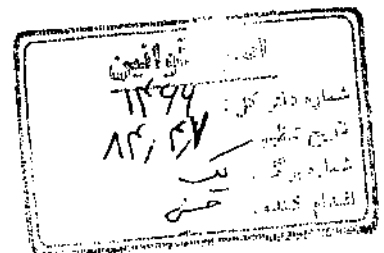 قوانین
شماره دفتر کل: ۱۲۹۹
تاریخ تنظیم ۸۴/۴/۷
شماره برگ: یک
اقدام کننده: حسن